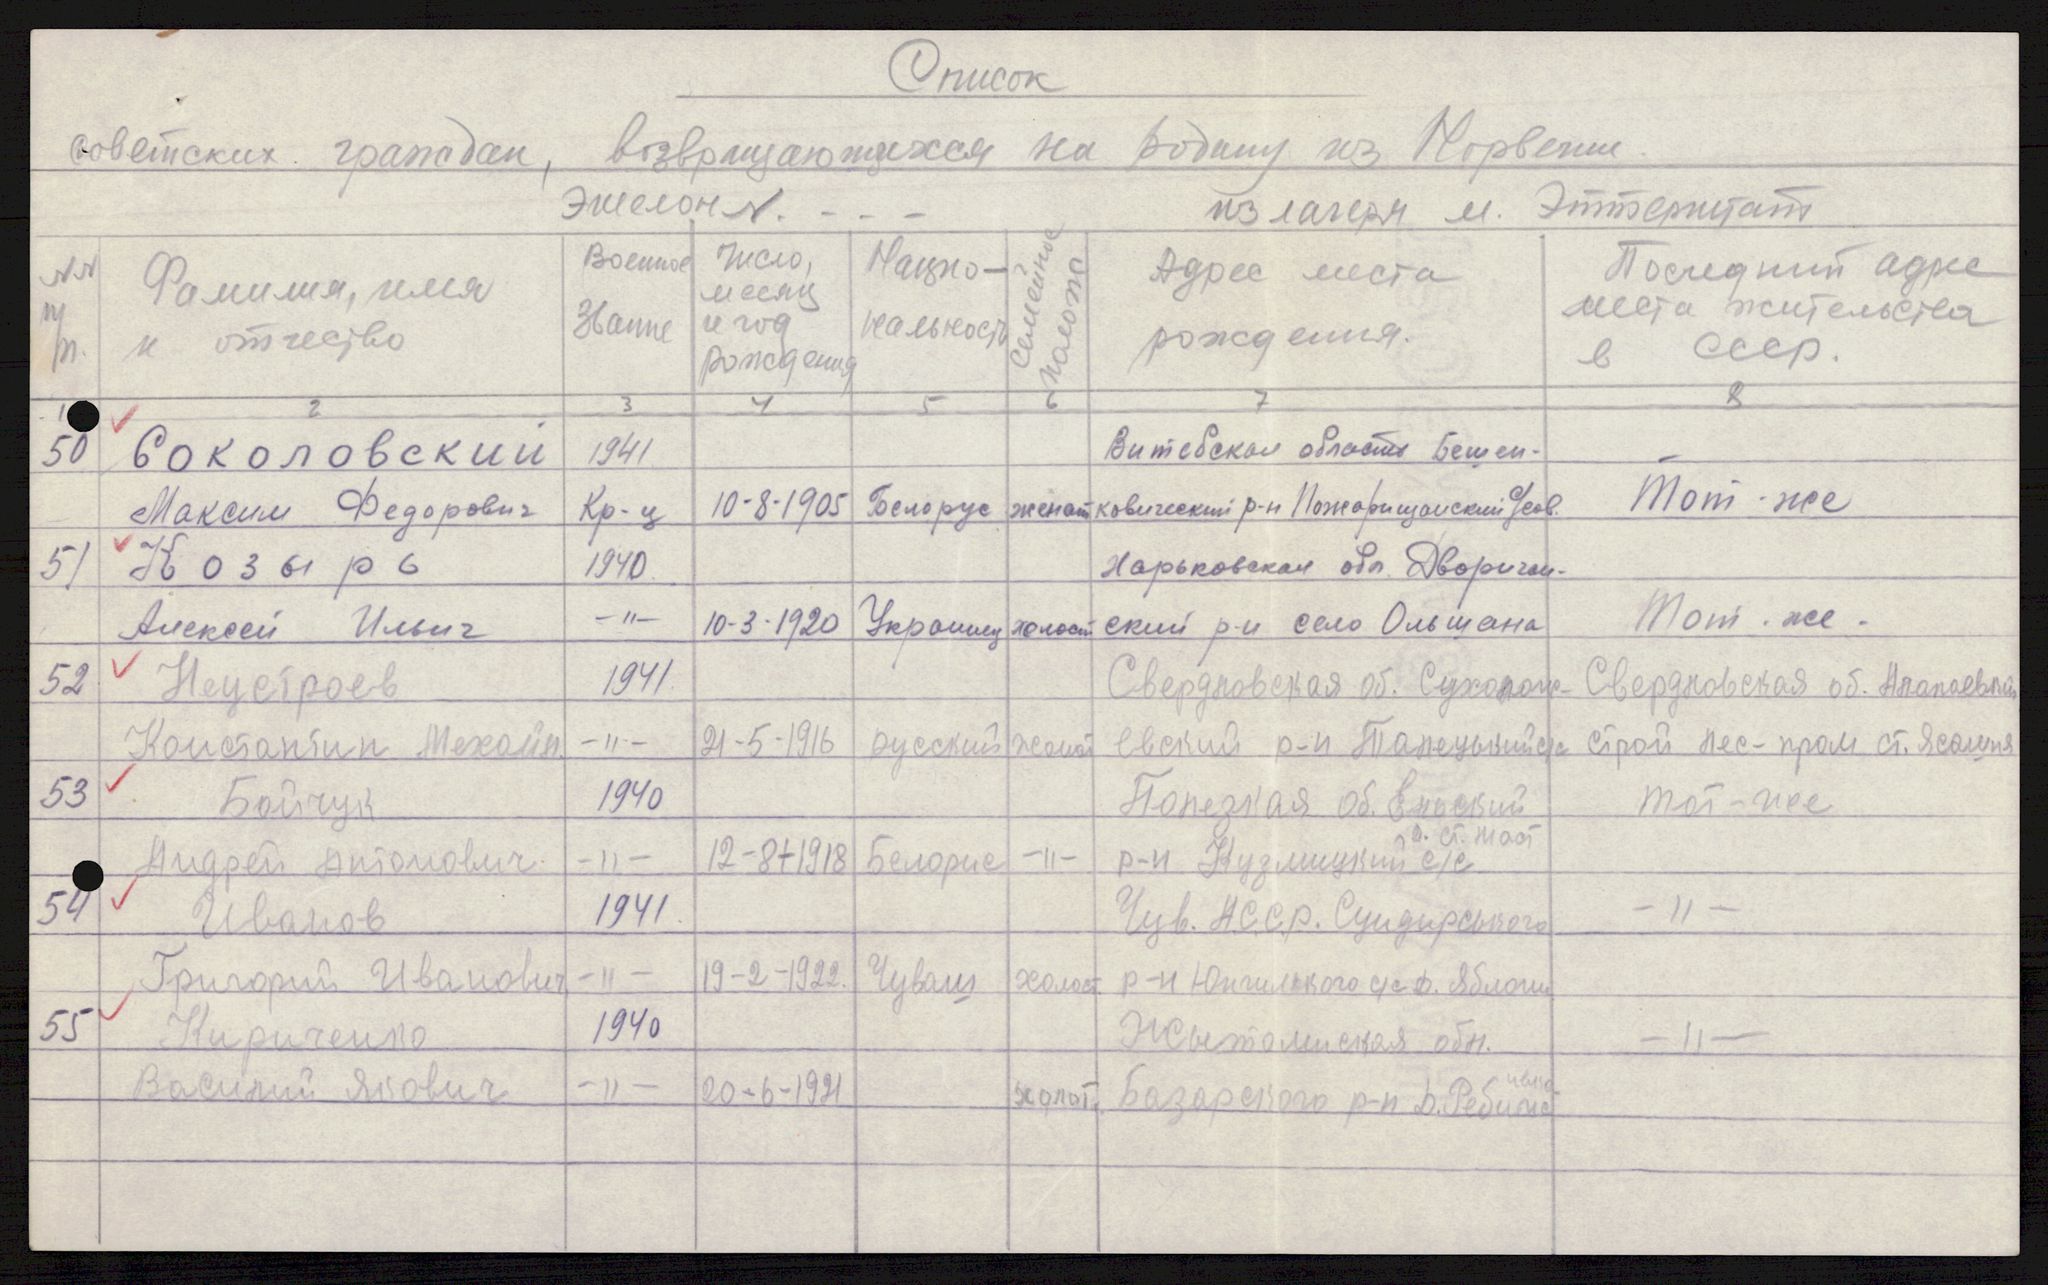 Список
советских граждан, возвращающихся на родину из Норвегии.
Эшелон N. - - - из лагеря м. Эттерштат
NN п/п. Фамилия, имя и отчество Военное звание Число, месяц и год рождения Нацио-нальность Семейное полож. Адрес места рождения. Последний адрес места жительства в СССР.
1 2 3 4 5 6 7 8
50 Соколовский 1941 Витебская область Бешен-
Максим Федорович Кр-ц 10-8-1905 Белорус женат ковический р-н Пожарищанский с/сов. Тот-же
51 Козырь 1940. Харьковская обл. Дворичан-
Алексей Ильич -"- 10-3-1920 Украинец холост ский р-н село Ольшана Тот-же.
52 Неустроев 1941. Свердловская об. Сухолож- Свердловская об. Алапаевский
Константин Мехайл. -"- 21-5-1916 русский холост евский р-н Талецький с/с строй лес-пром ст. Ясашня
53 Бойчук 1940 об. тот-же
Андрей Антонович -"- 12-8-1918 Белорис -"- р-н Кузлицкий с/с
54 Иванов 1941. Чув. АССР. Сундирського -"-
Григорий Иванович -"- 19-2-1922. Чуваш холост р-н Юнгильского с/с д.
55 Кириченко 1940 Жытомиская обл. -"-
Василий Якович -"- 20-6-1921 холост. Базарского р-н д.